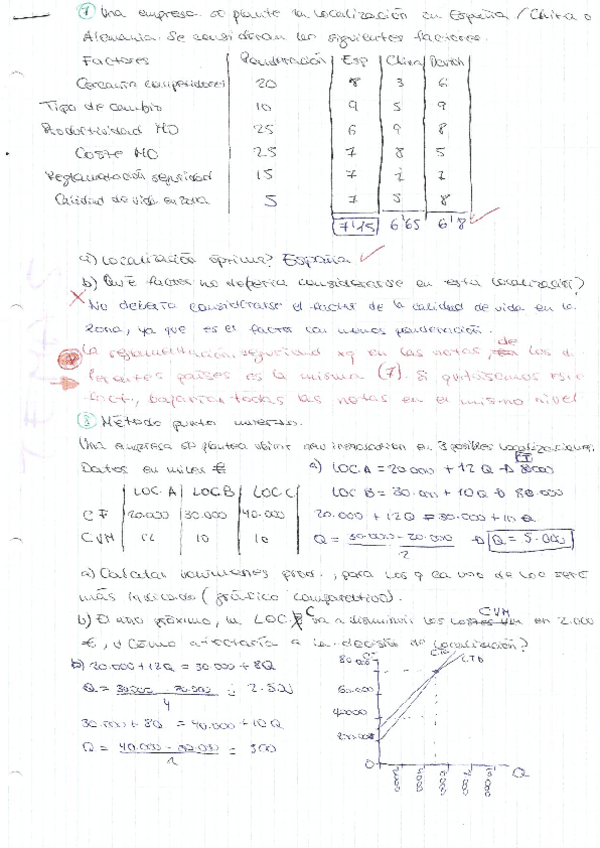 ① Una empresa se plante la localización en España / China o
Alemania. Se consideran los siguientes factores.
Factores Ponderación Esp China
Cercanía competidores 20 8 3 6
Tipo de cambio 10 9 5 9
Productividad MO 25 6 9 8
Coste MO 25 7 8 5
Reglamentación seguridad 15 7
Calidad de vida en zona 5 7 5 8
7'15 6'65 6'8
a) Localización óptima? España
b) Qué factor no debería considerarse en esta localización?
No debería considerarse el factor de la calidad de vida en la
zona, ya que es el factor con menos ponderación.
La reglamentación seguridad xq en las notas, de los di
ferentes países es la misma (7). Si quitásemos ese
fact., bajarían todas las notas en el mismo nivel
③ Método punto muerto.
Una empresa se plantea ubicar en 3 posibles localizaciones.
Datos en miles €
LOC. A LOC. B LOC. C
CF 20.000 30.000 40.000
CVM 12 10 10
a) LOC. A = 20.000 + 12Q → 8000
LOC B = 30.000 + 10Q → 80.000
20.000 + 12Q = 30.000 + 10Q
Q = 30.000 - 20.000 / 2 → Q = 5.000
a) Calcular volúmenes prod., para los q ca uno de loc será
más indicado (gráfico comparativo).
b) El año próximo, la LOC. C va a disminuir los CVM en 2.000
€, ¿Cómo afectaría a la decisión de localización?
b) 20.000 + 12Q = 30.000 + 8Q
Q = 30.000 - 20.000 / 4 = 2.500
30.000 + 8Q = 40.000 + 10Q
Q = / 2 = 500
80.000
60.000
40.000
20.000
0
Q